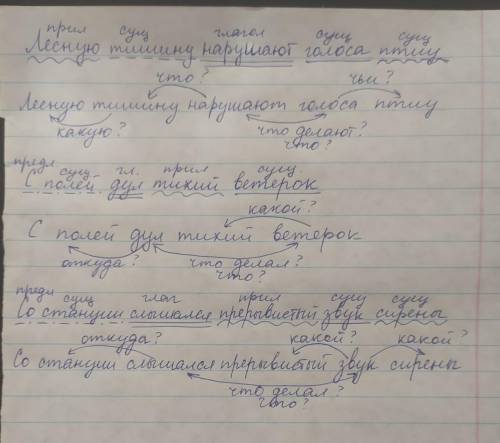 прил сущ глагол сущ сущ
Лесную тишину нарушают голоса птиц
что? чьи?
Лесную тишину нарушают голоса птиц
какую? что делают?
что?
предл сущ гл. прил сущ.
С полей дул тихий ветерок
какой?
С полей дул тихий ветерок
откуда? что делал?
что?
предл сущ глаг прил сущ сущ
Со станции слышался прерывистый звук сирены
откуда? какой? какой?
Со станции слышался прерывистый звук сирены
что делал?
что?